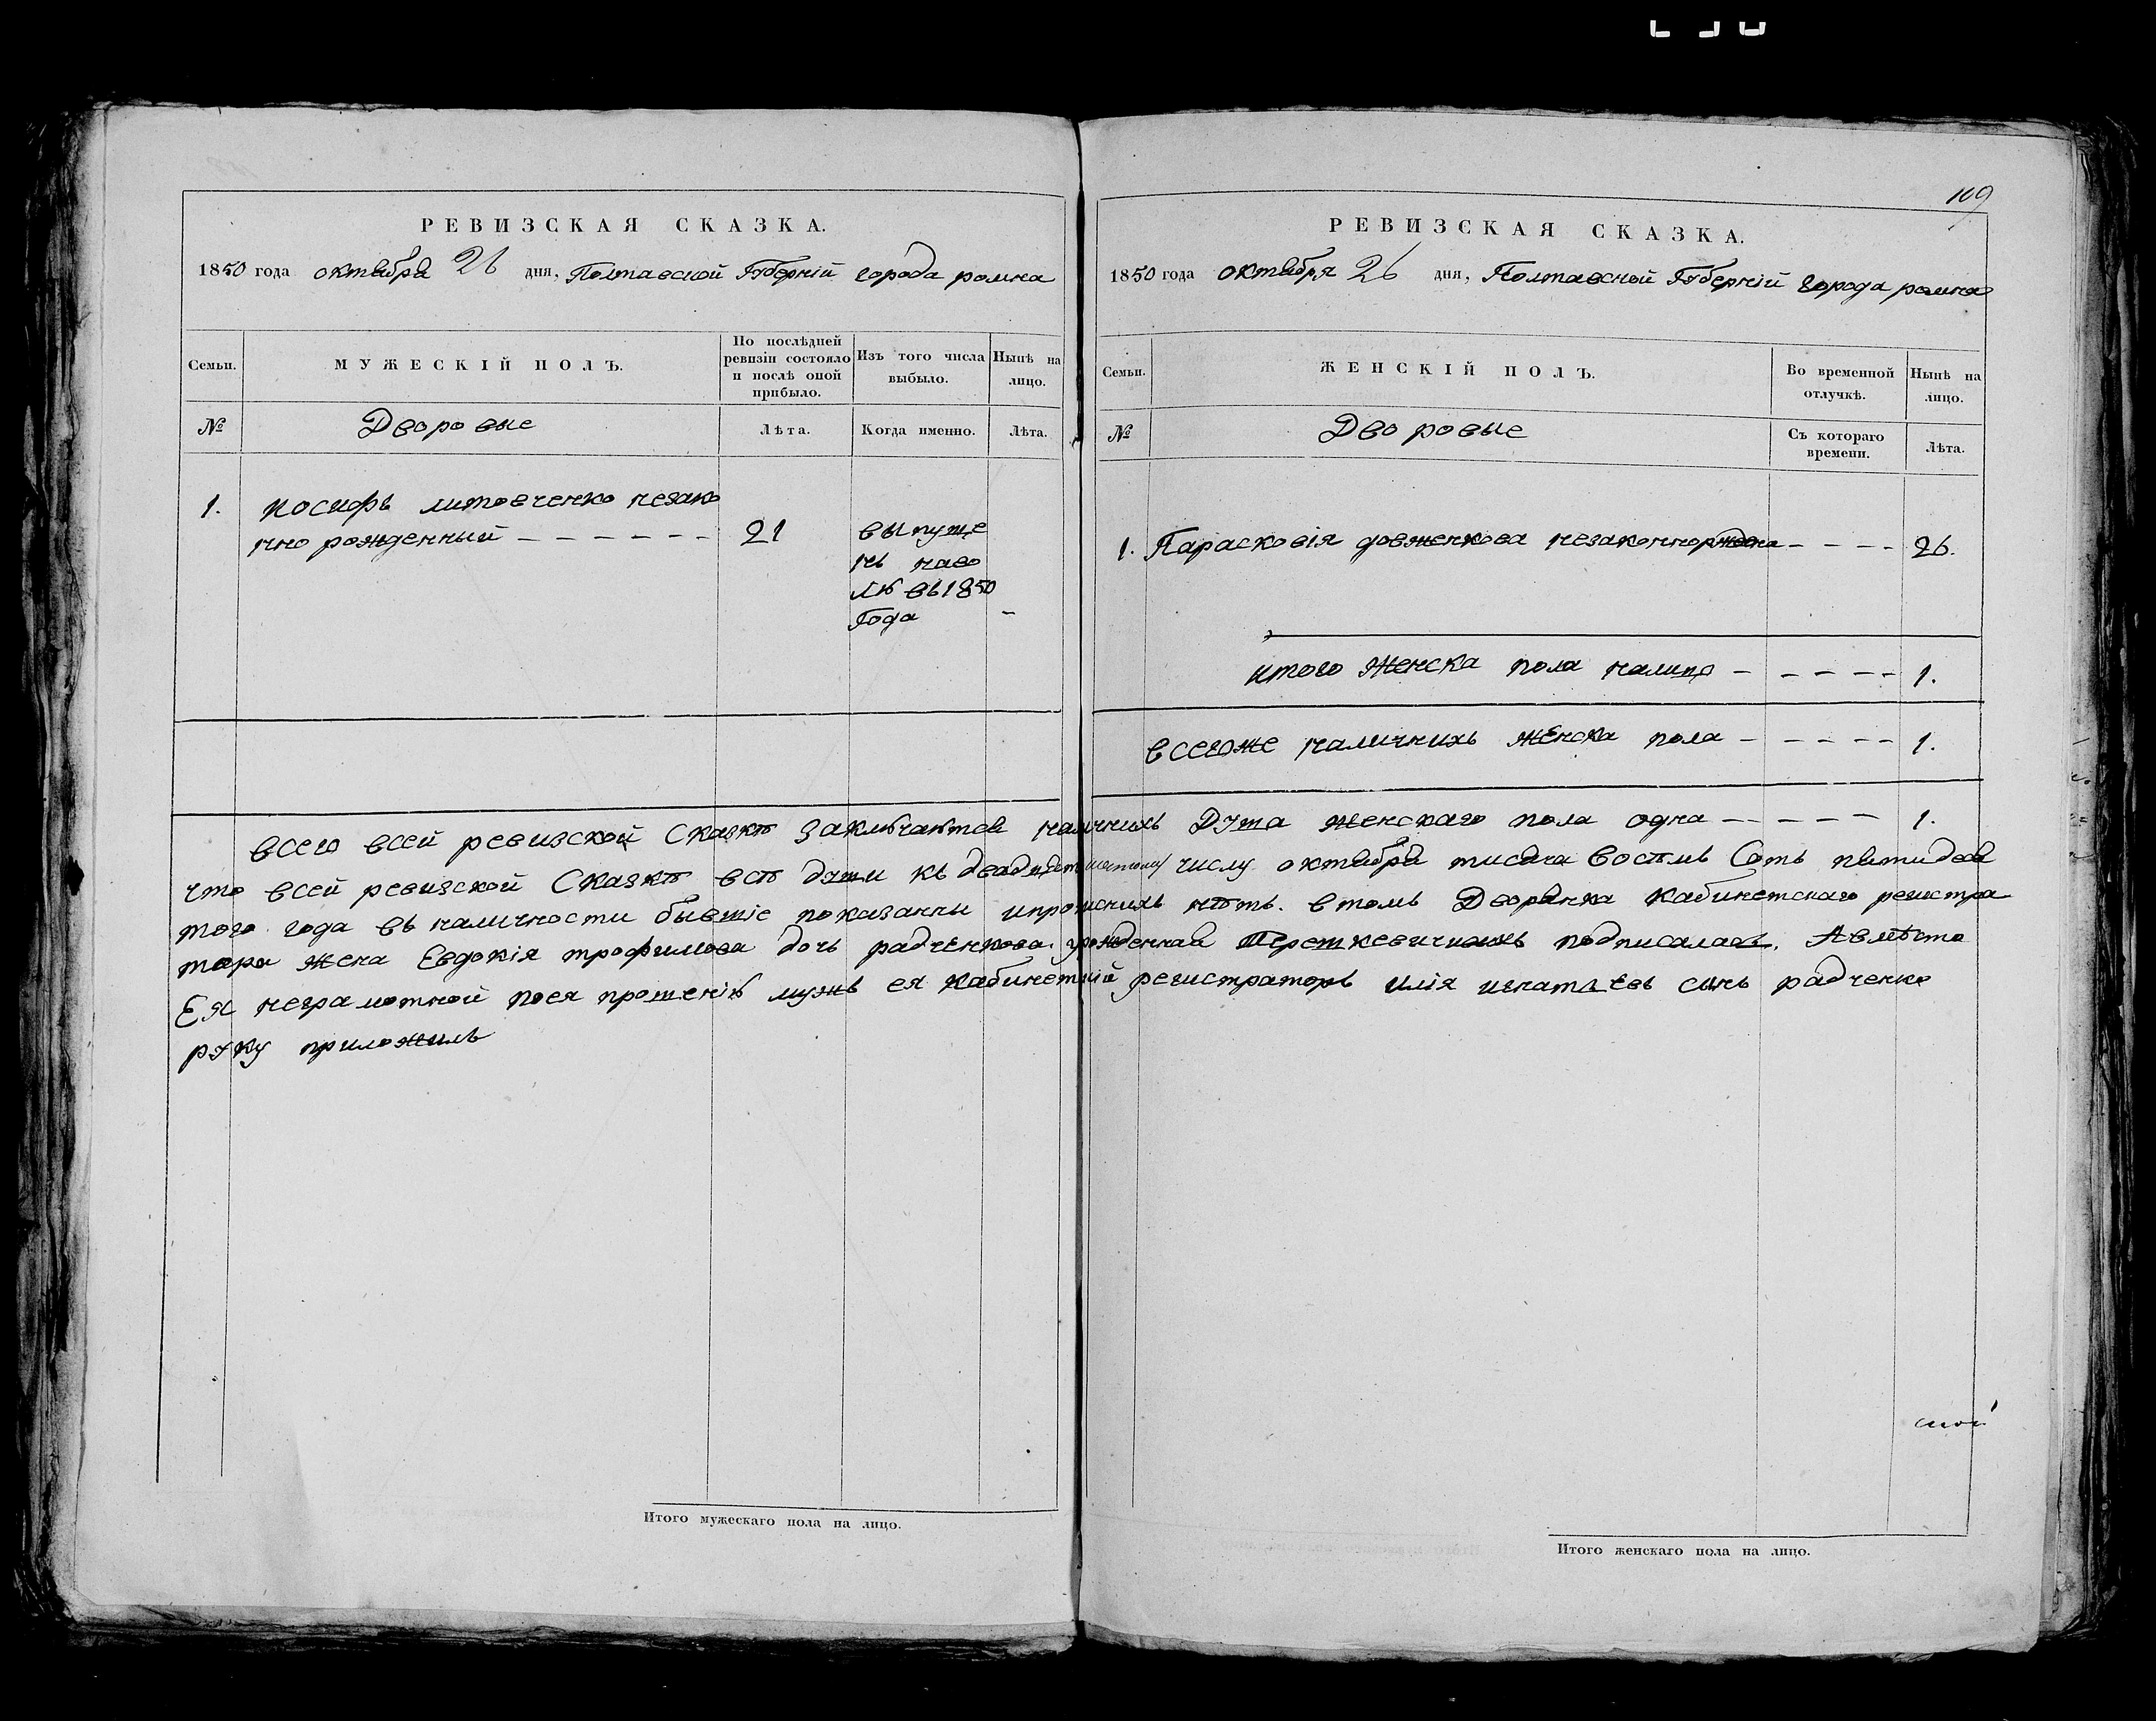 109
РЕВИЗСКАЯ СКАЗКА.
1850 года октября 26 дня, Полтавской Губерній города ромна
Семьи.
МУЖЕСКІЙ ПОЛЪ.
По послѣдней ревизіи состояло и послѣ оной прибыло.
Изъ того числа выбыло.
Нынѣ на лицо.
№
Дворовые
Лѣта.
Когда именно.
Лѣта.
1. иосифъ литовченко незако
нно рожденный — — — — — — 21
выпуще
нъ наво
лю въ 1850
Года -
РЕВИЗСКАЯ СКАЗКА.
1850 года октября 26 дня, Полтавской Губерній города ромна
Семьи.
ЖЕНСКІЙ ПОЛЪ.
Во временной отлучкѣ.
Нынѣ на лицо.
№
Дворовые
Съ котораго времени.
Лѣта.
1. Парасковія довженкова — — — — 26.
итого женска пола налицо — — — — — 1.
всегоже наличнихъ женска пола — — — — — 1.
всего всей ревизской Сказкѣ наличнихъ Душа женскаго пола одна — — — — — 1.
что всей ревизской Сказкѣ всѣ души къ числу октября тисяча восѣмь Сотъ пятидеся
того года въ наличности бывшіе показанны нѣтъ. втомъ Дворянка Кабинетскаго регистра
тора жена Евдокія трофимова дочь радченкова урожденная подписалась, Авмѣсто
Ея неграмотной поея прошенію мужъ ея Кабинетній регистраторъ илія игнатьевъ синъ радченко
руку приложилъ
Итого мужескаго пола на лицо.
Итого женскаго пола на лицо.